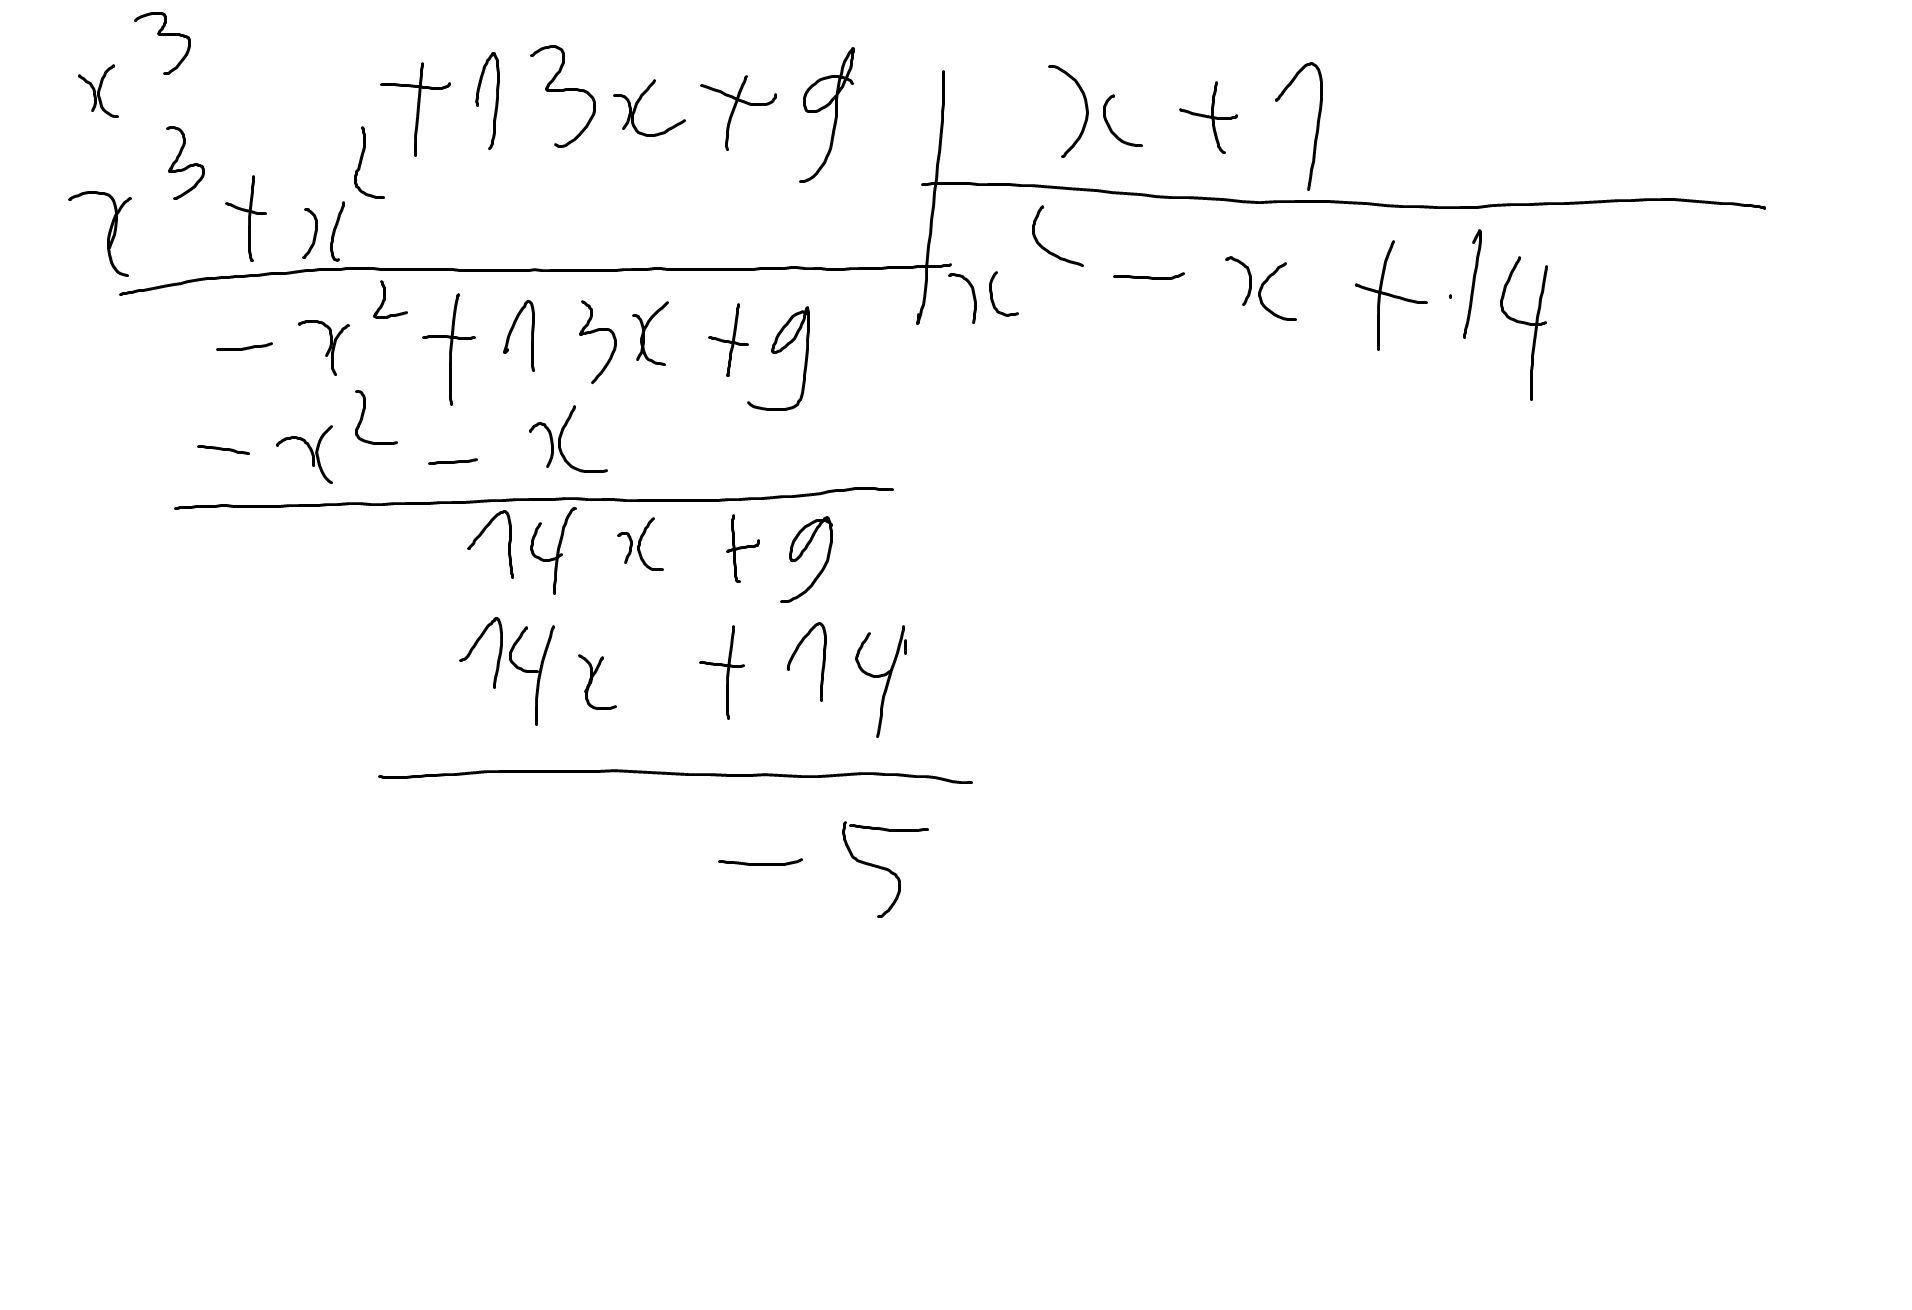 x³ +13x+9 | x+1
x³+x² | x² - x + 14
-x²+13x+9
-x² - x
14x +9
14x +14
-5